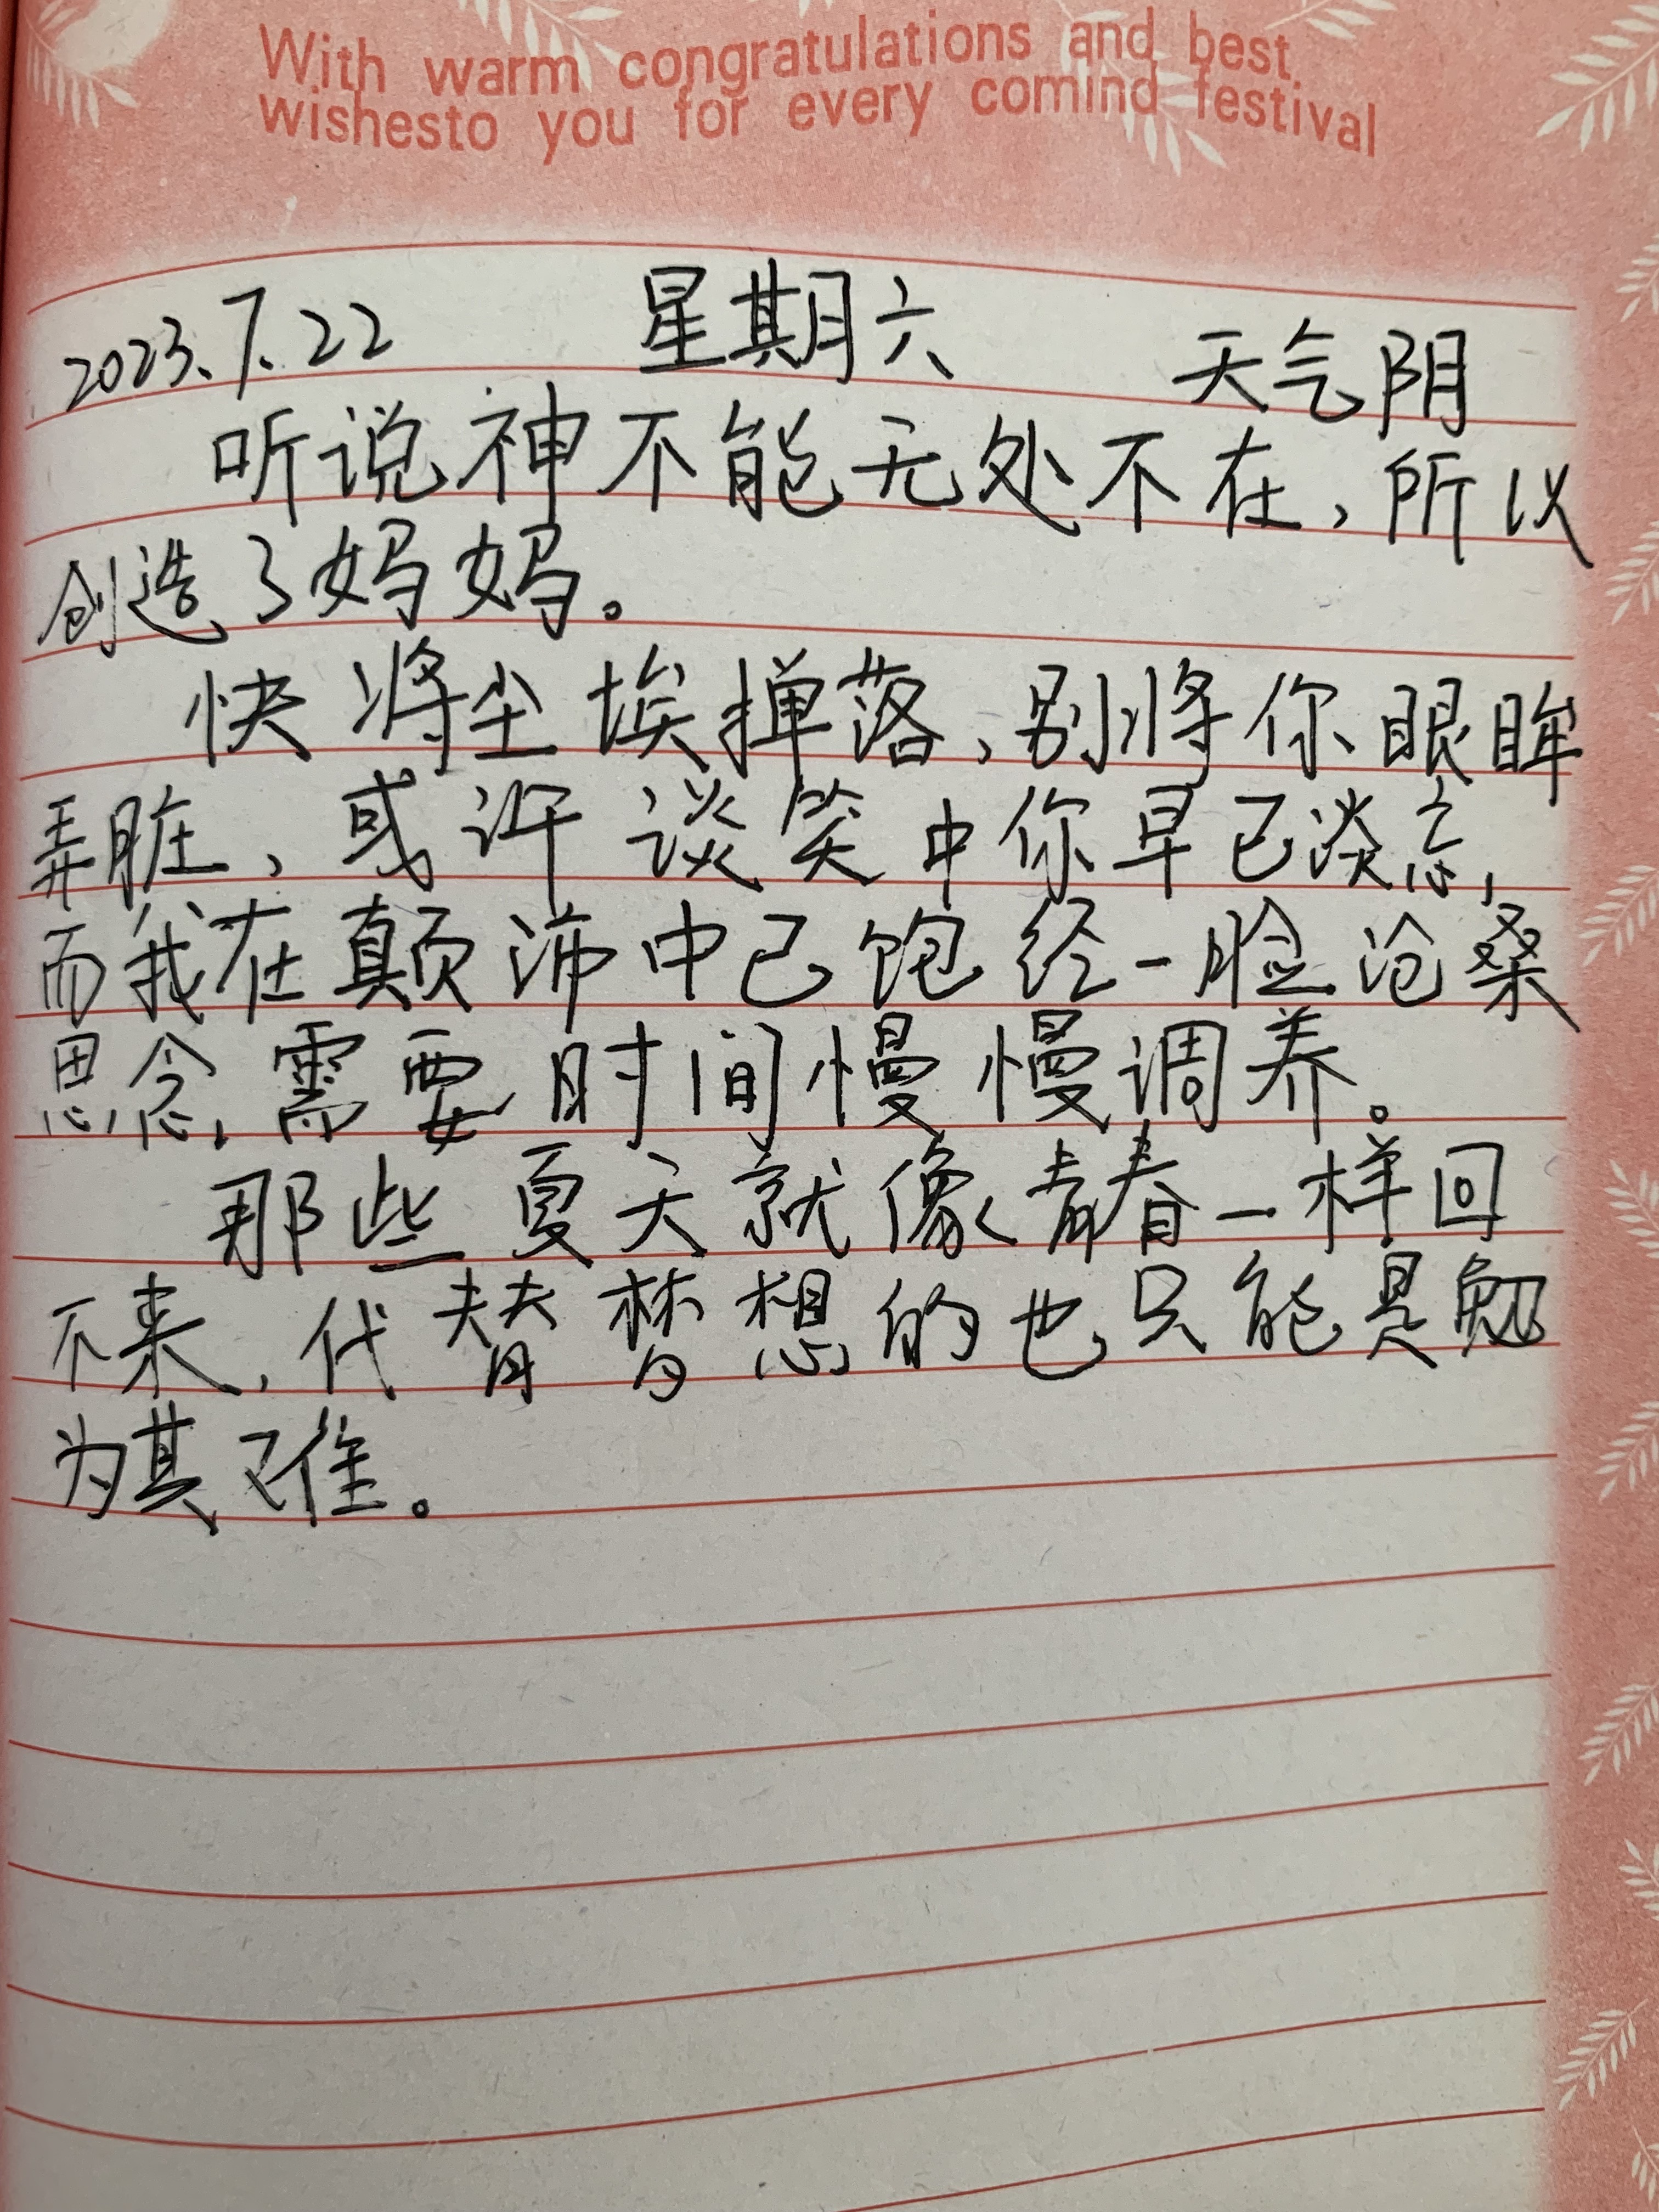 With warm congratulations and best
wishesto you for every comind festival
2023.7.22 星期六 天气阴
听说神不能无处不在,所以
创造了妈妈。
快将尘埃掸落,别将你眼眸
弄脏,或许谈笑中你早已淡忘,
而我在颠沛中已饱经一脸沧桑
思念,需要时间慢慢调养。
那些夏天就像青春一样回
不来,代替梦想的也只能是勉
为其难。